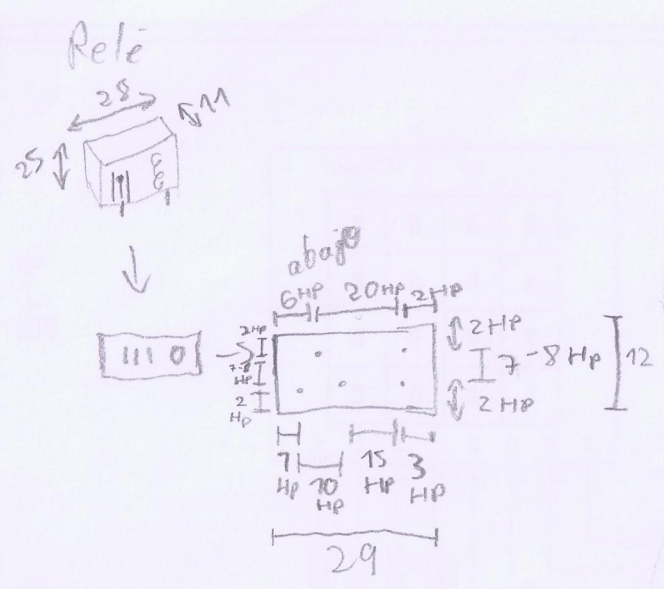 Relé
28
11
25
abajo
6HP 20HP 2HP
2HP
7-8
HP
2
HP
2HP
7-8 HP
2 HP
12
1
HP
10
HP
15
HP
3
HP
29